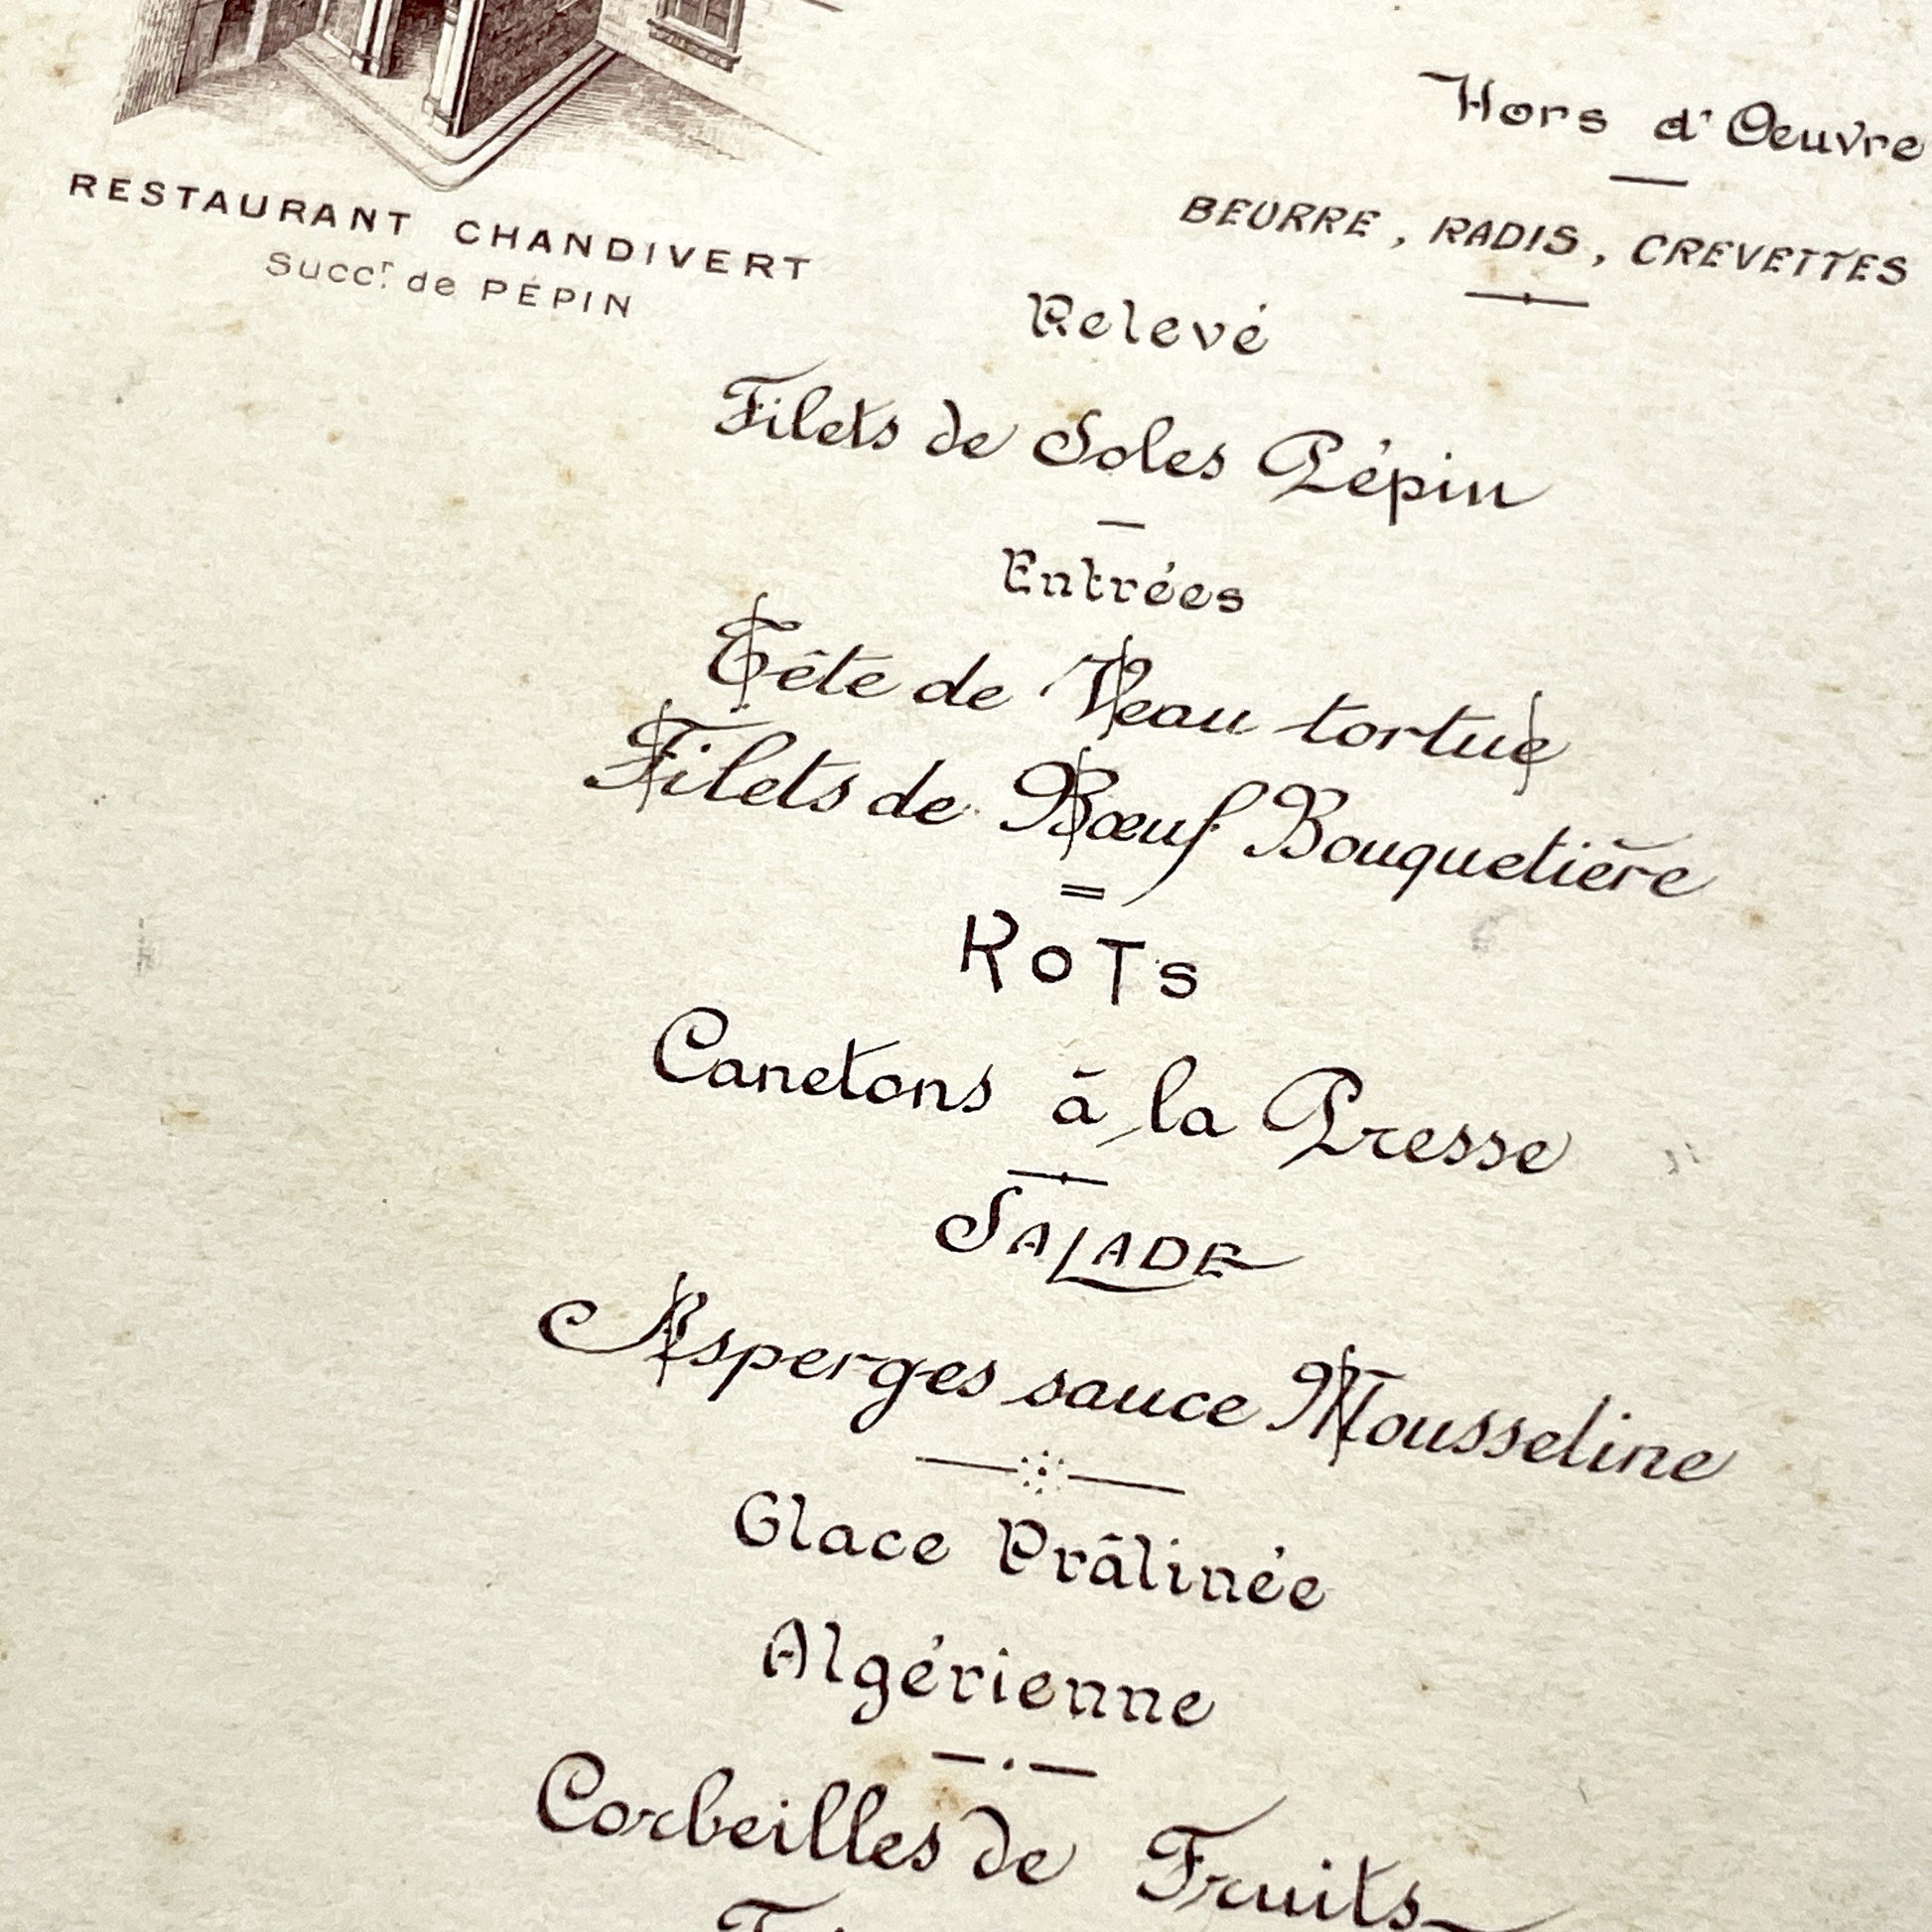 RESTAURANT CHANDIVERT
Succr. de PÉPIN
Hors d'Oeuvre
BEURRE, RADIS, CREVETTES
Relevé
Filets de Soles Pépin
Entrées
Tête de Veau tortue
Filets de Bœuf Bouquetière
RoTs
Canetons à la Presse
SALADE
Asperges sauce Mousseline
Glace Prâlinée
Algérienne
Corbeilles de Fruits